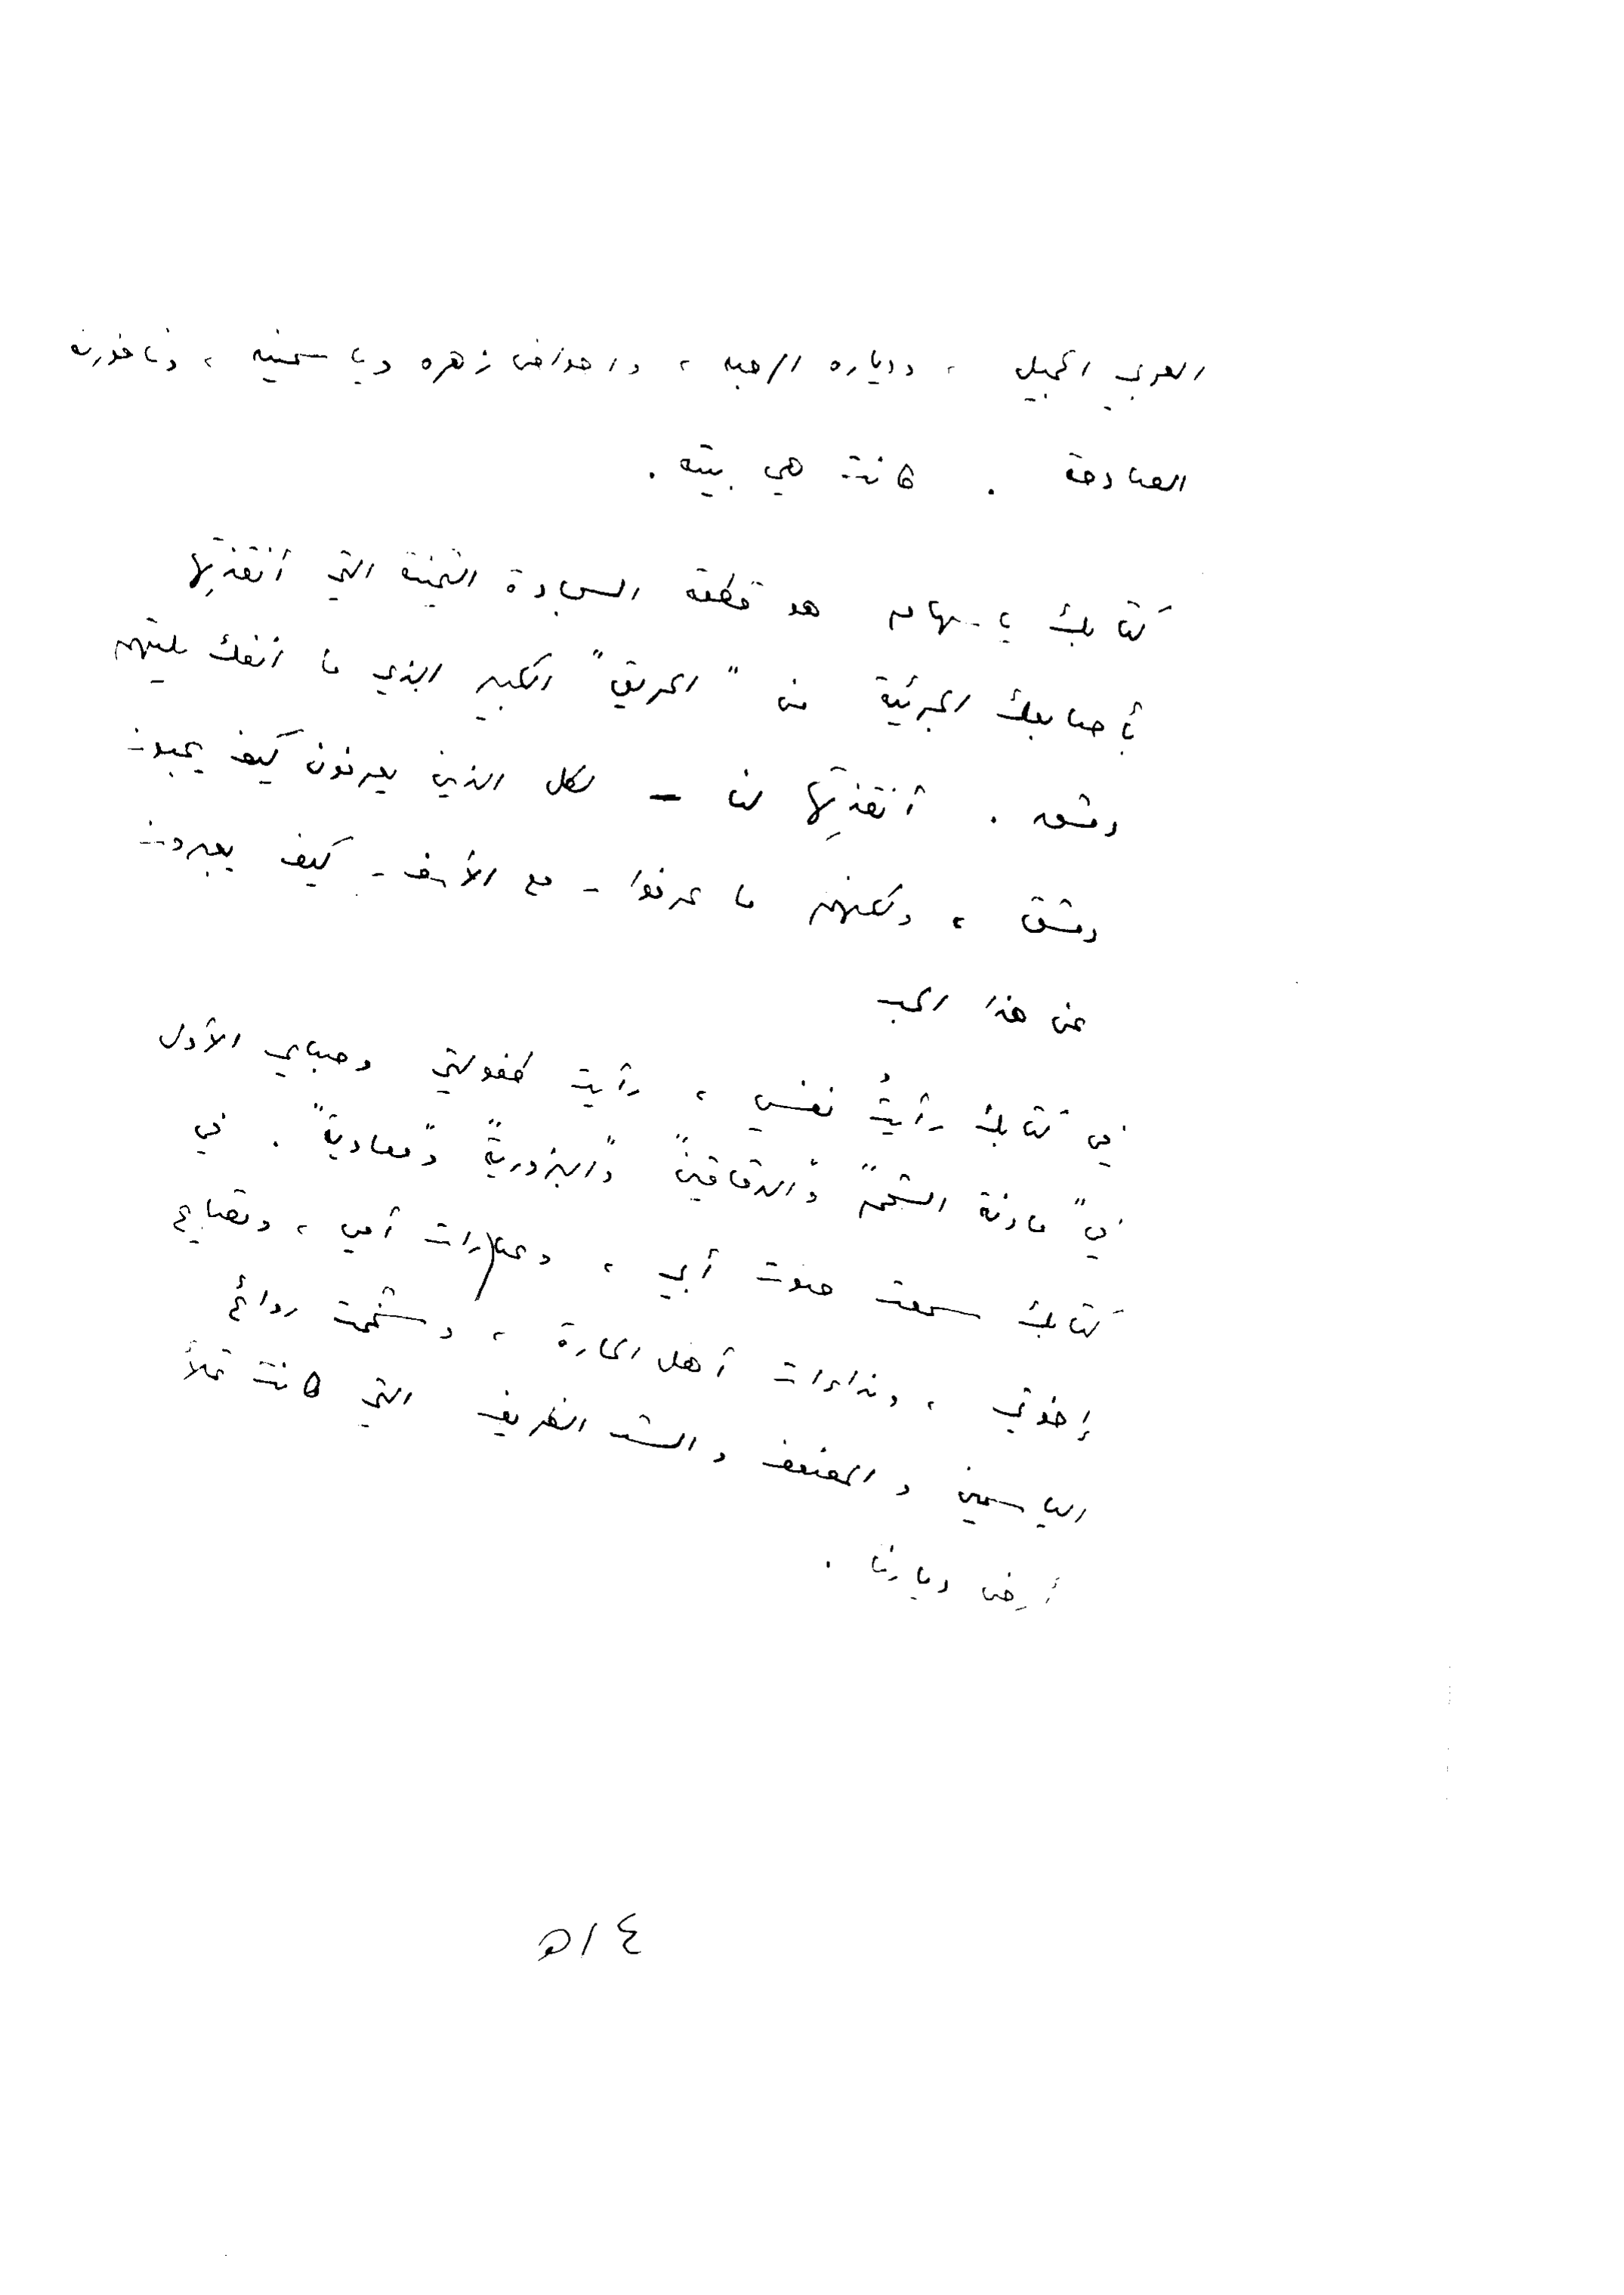 العربي الجميل ، ودياره الرحبه ، واحواض زهره وياسمينه ، ونافورته
الصادحة . كانت هي بيته .
كتابك يا سهام هو قطعة السجادة الثمينة التي أنقذتِها
بأصابعك الجريئة من " الحريق " الكبير الذي ما انفك يلتهم
دمشق . أنقذتِها لنا - لكل الذين يعرفون كيف يحبون
دمشق ، ولكنهم ما عرفوا - مع الأسف - كيف يعبرون
عن هذا الحب
في كتابك رأيتُ نفسي ، رأيت طفولتي وصباي الأول
في " مادنة الشحم " و " الدقاقين " و " البزورية " و " معاوية " . في
كتابك سمعت صوت أبي ، وعبارات أمي ، وتصايح
إخوتي ، ونداءات أهل الحارة ، وشممت روائح
الياسمين والمضعف والشب الظريف التي كانت تملأ
أرض ديارنا .
٥١٤